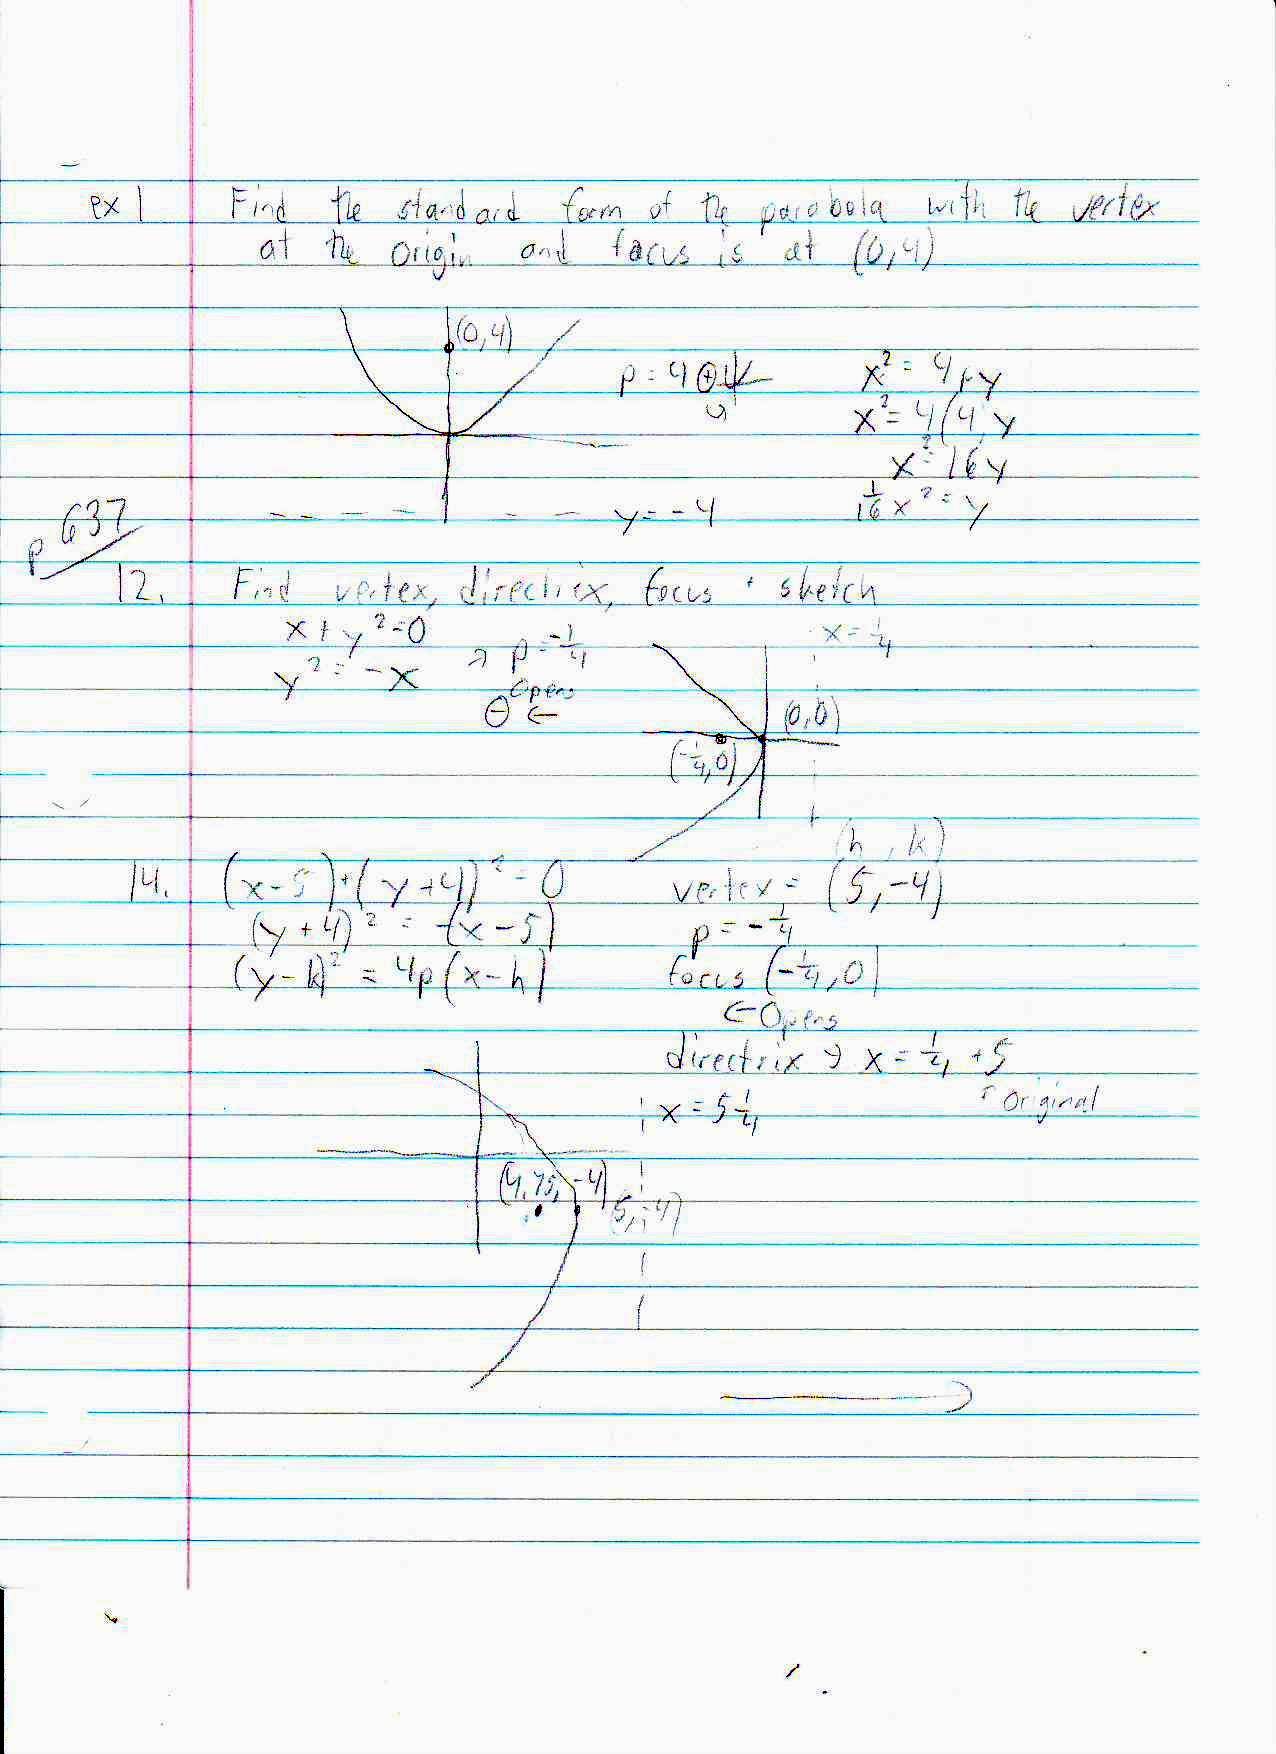 ex 1 Find the standard form of the parabola with the vertex
at the origin and focus is at (0,4)
(0,4)
p = 4 ⊕
x² = 4py
x² = 4(4)y
x² = 16y
1/16 x² = y
y = -4
p 637
12. Find vertex, directrix, focus + sketch
x + y² = 0
y² = -x → p = -1/4
Opens
⊖ ←
x = 1/4
(0,0)
(-1/4,0)
14. (x-5)+(y+4)² = 0
(y+4)² = -(x-5)
(y-k)² = 4p(x-h)
(h, k)
vertex = (5,-4)
p = -1/4
focus (-1/4,0)
← Opens
directrix → x = 1/4 + 5
↑ Original
x = 5 1/4
(4.75, -4)
(5,-4)